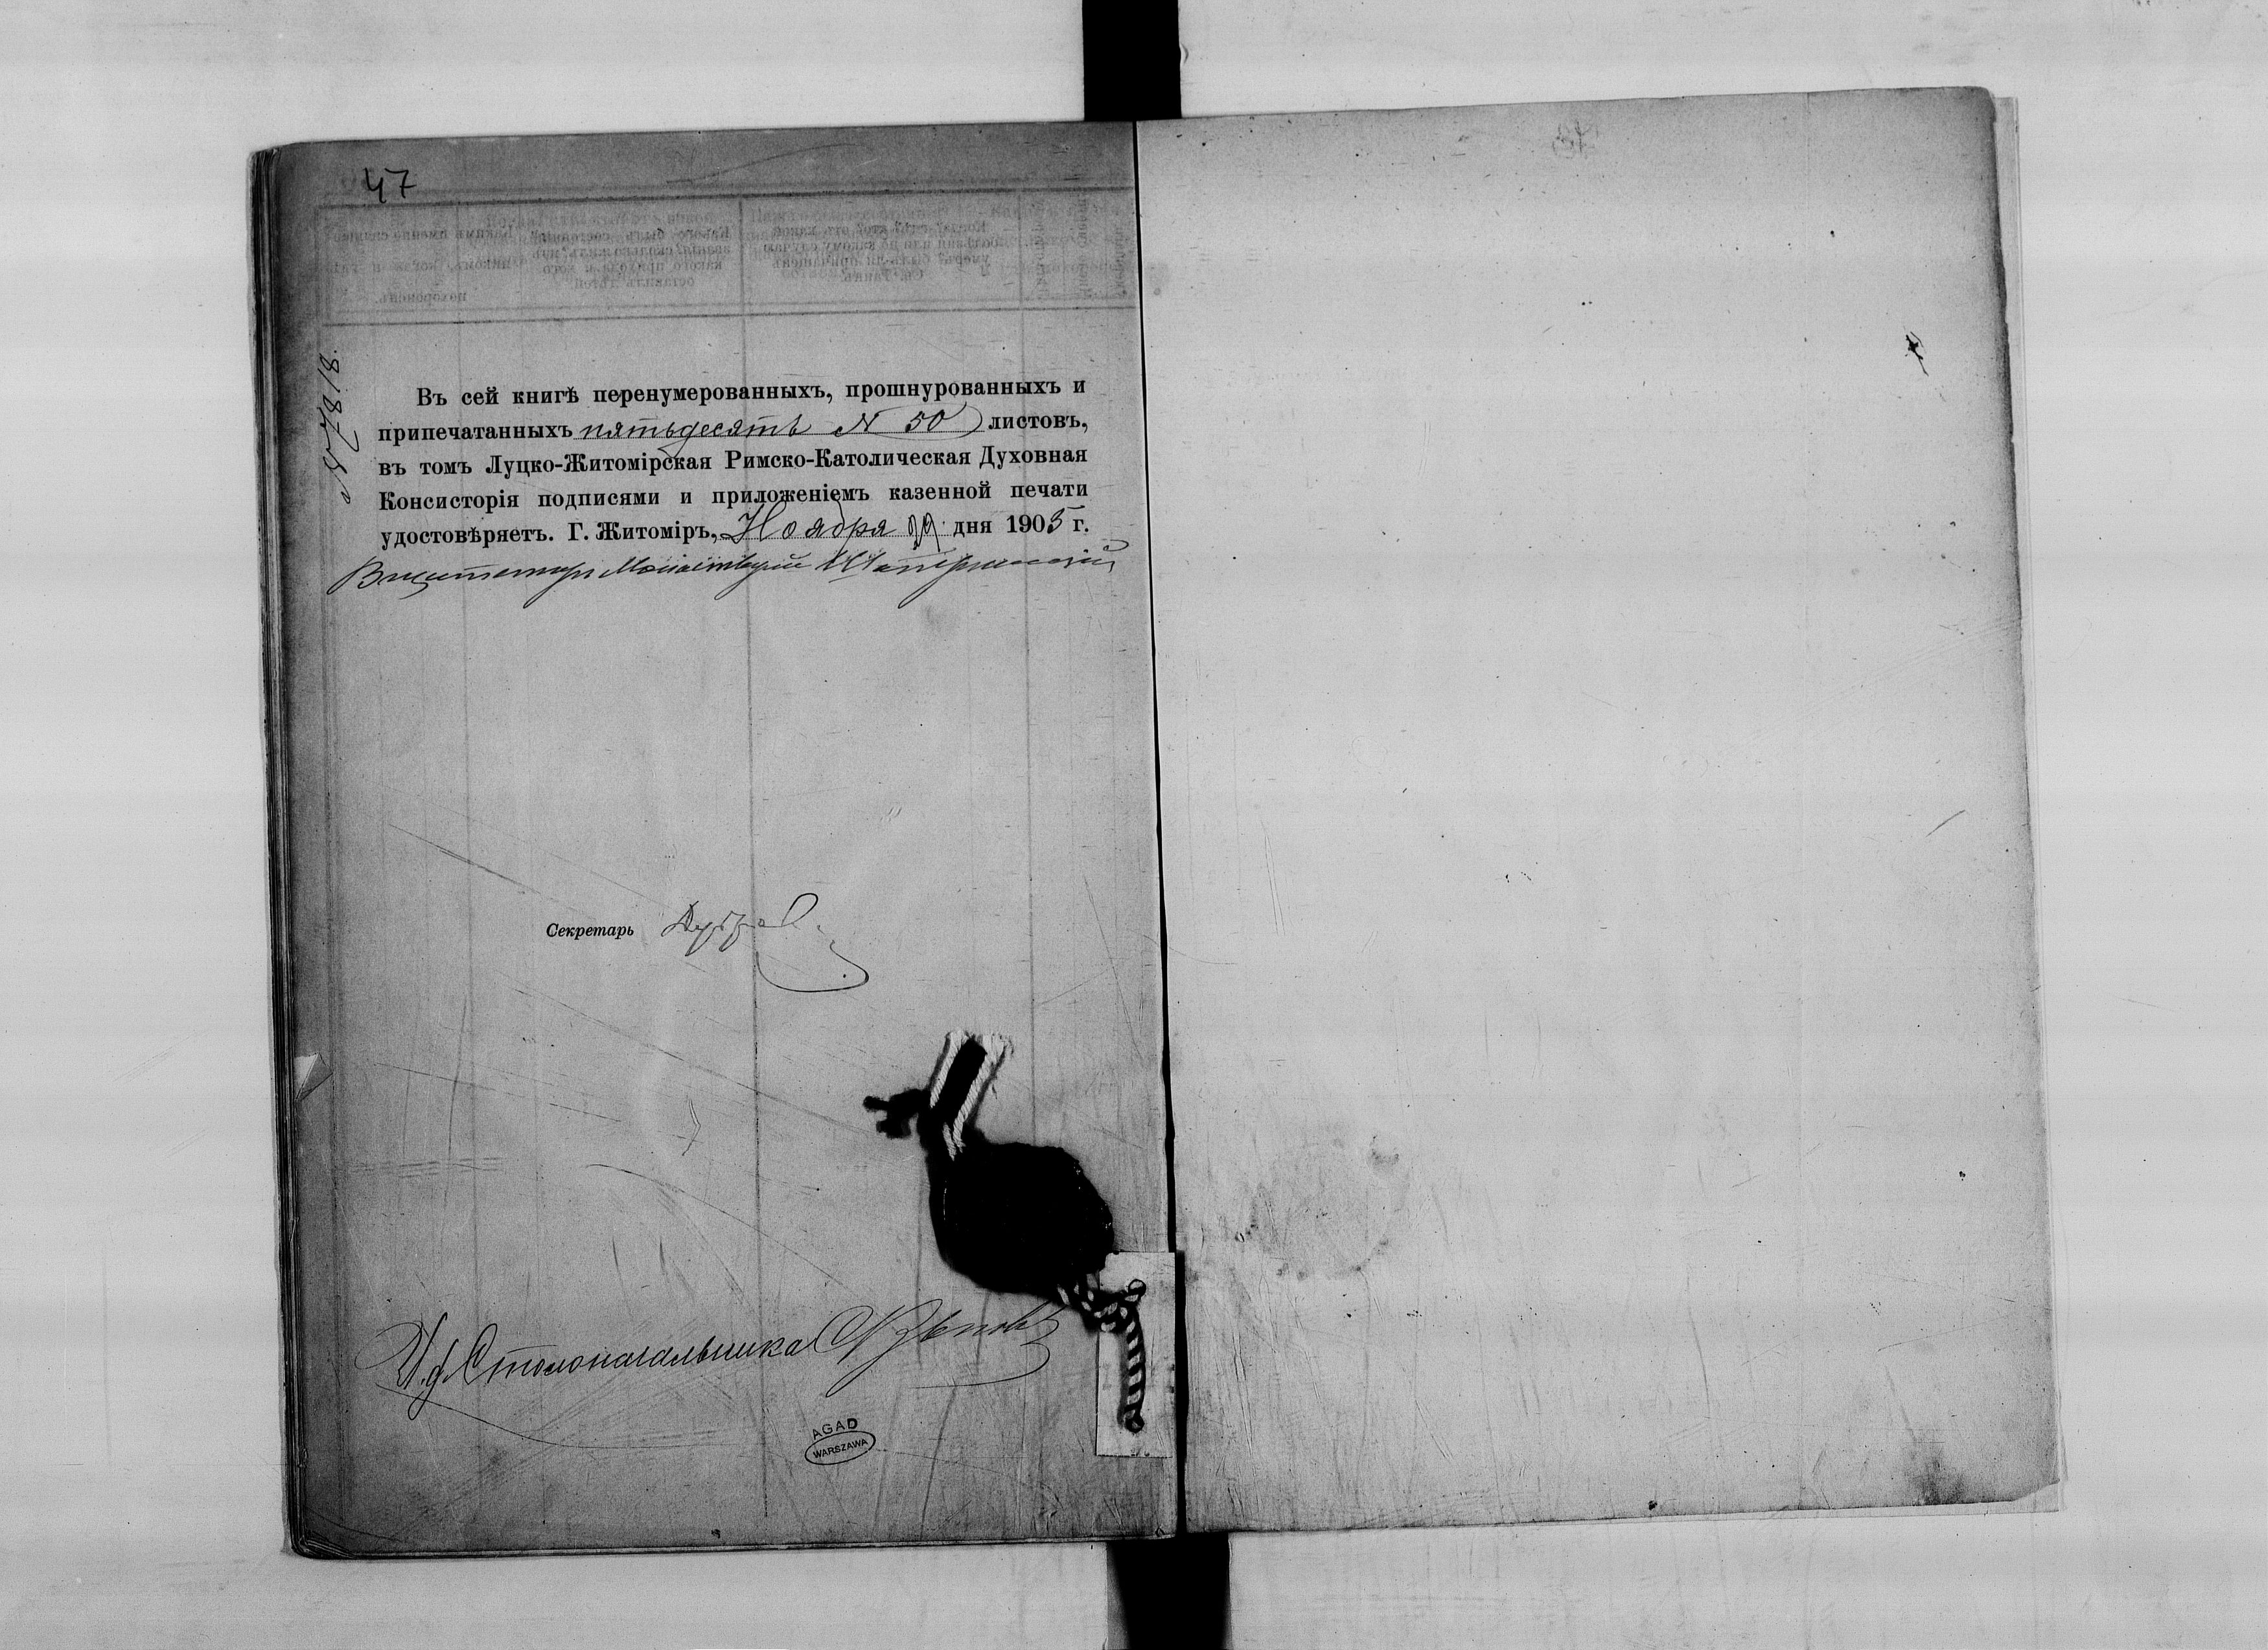 47
№ 7818.
Въ сей книгѣ перенумерованныхъ, прошнурованныхъ и
припечатанныхъ пятьдесятъ N 50 листовъ,
въ томъ Луцко-Житомірская Римско-Католическая Духовная
Консисторія подписями и приложеніемъ казенной печати
удостовѣряетъ. Г. Житоміръ, Ноября 29 дня 1905 г.
Визитаторъ Монастырей
Секретарь
И. д. Столоначальника
AGAD
WARSZAWA